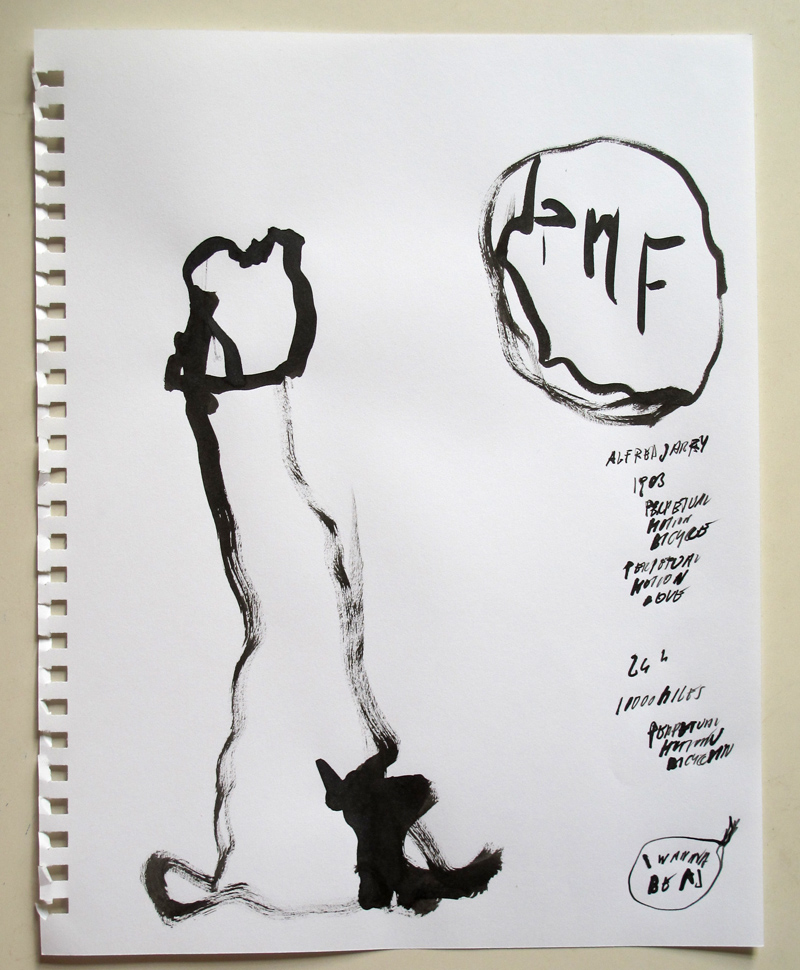 PMF
ALFRED JARRY
1903
PERPETUAL
MOTION
BICYCLE
PERPETUAL
MOTION
LOVE
24 h
10000 MILES
PERPETUAL
MOTION
I WANNA
BE A